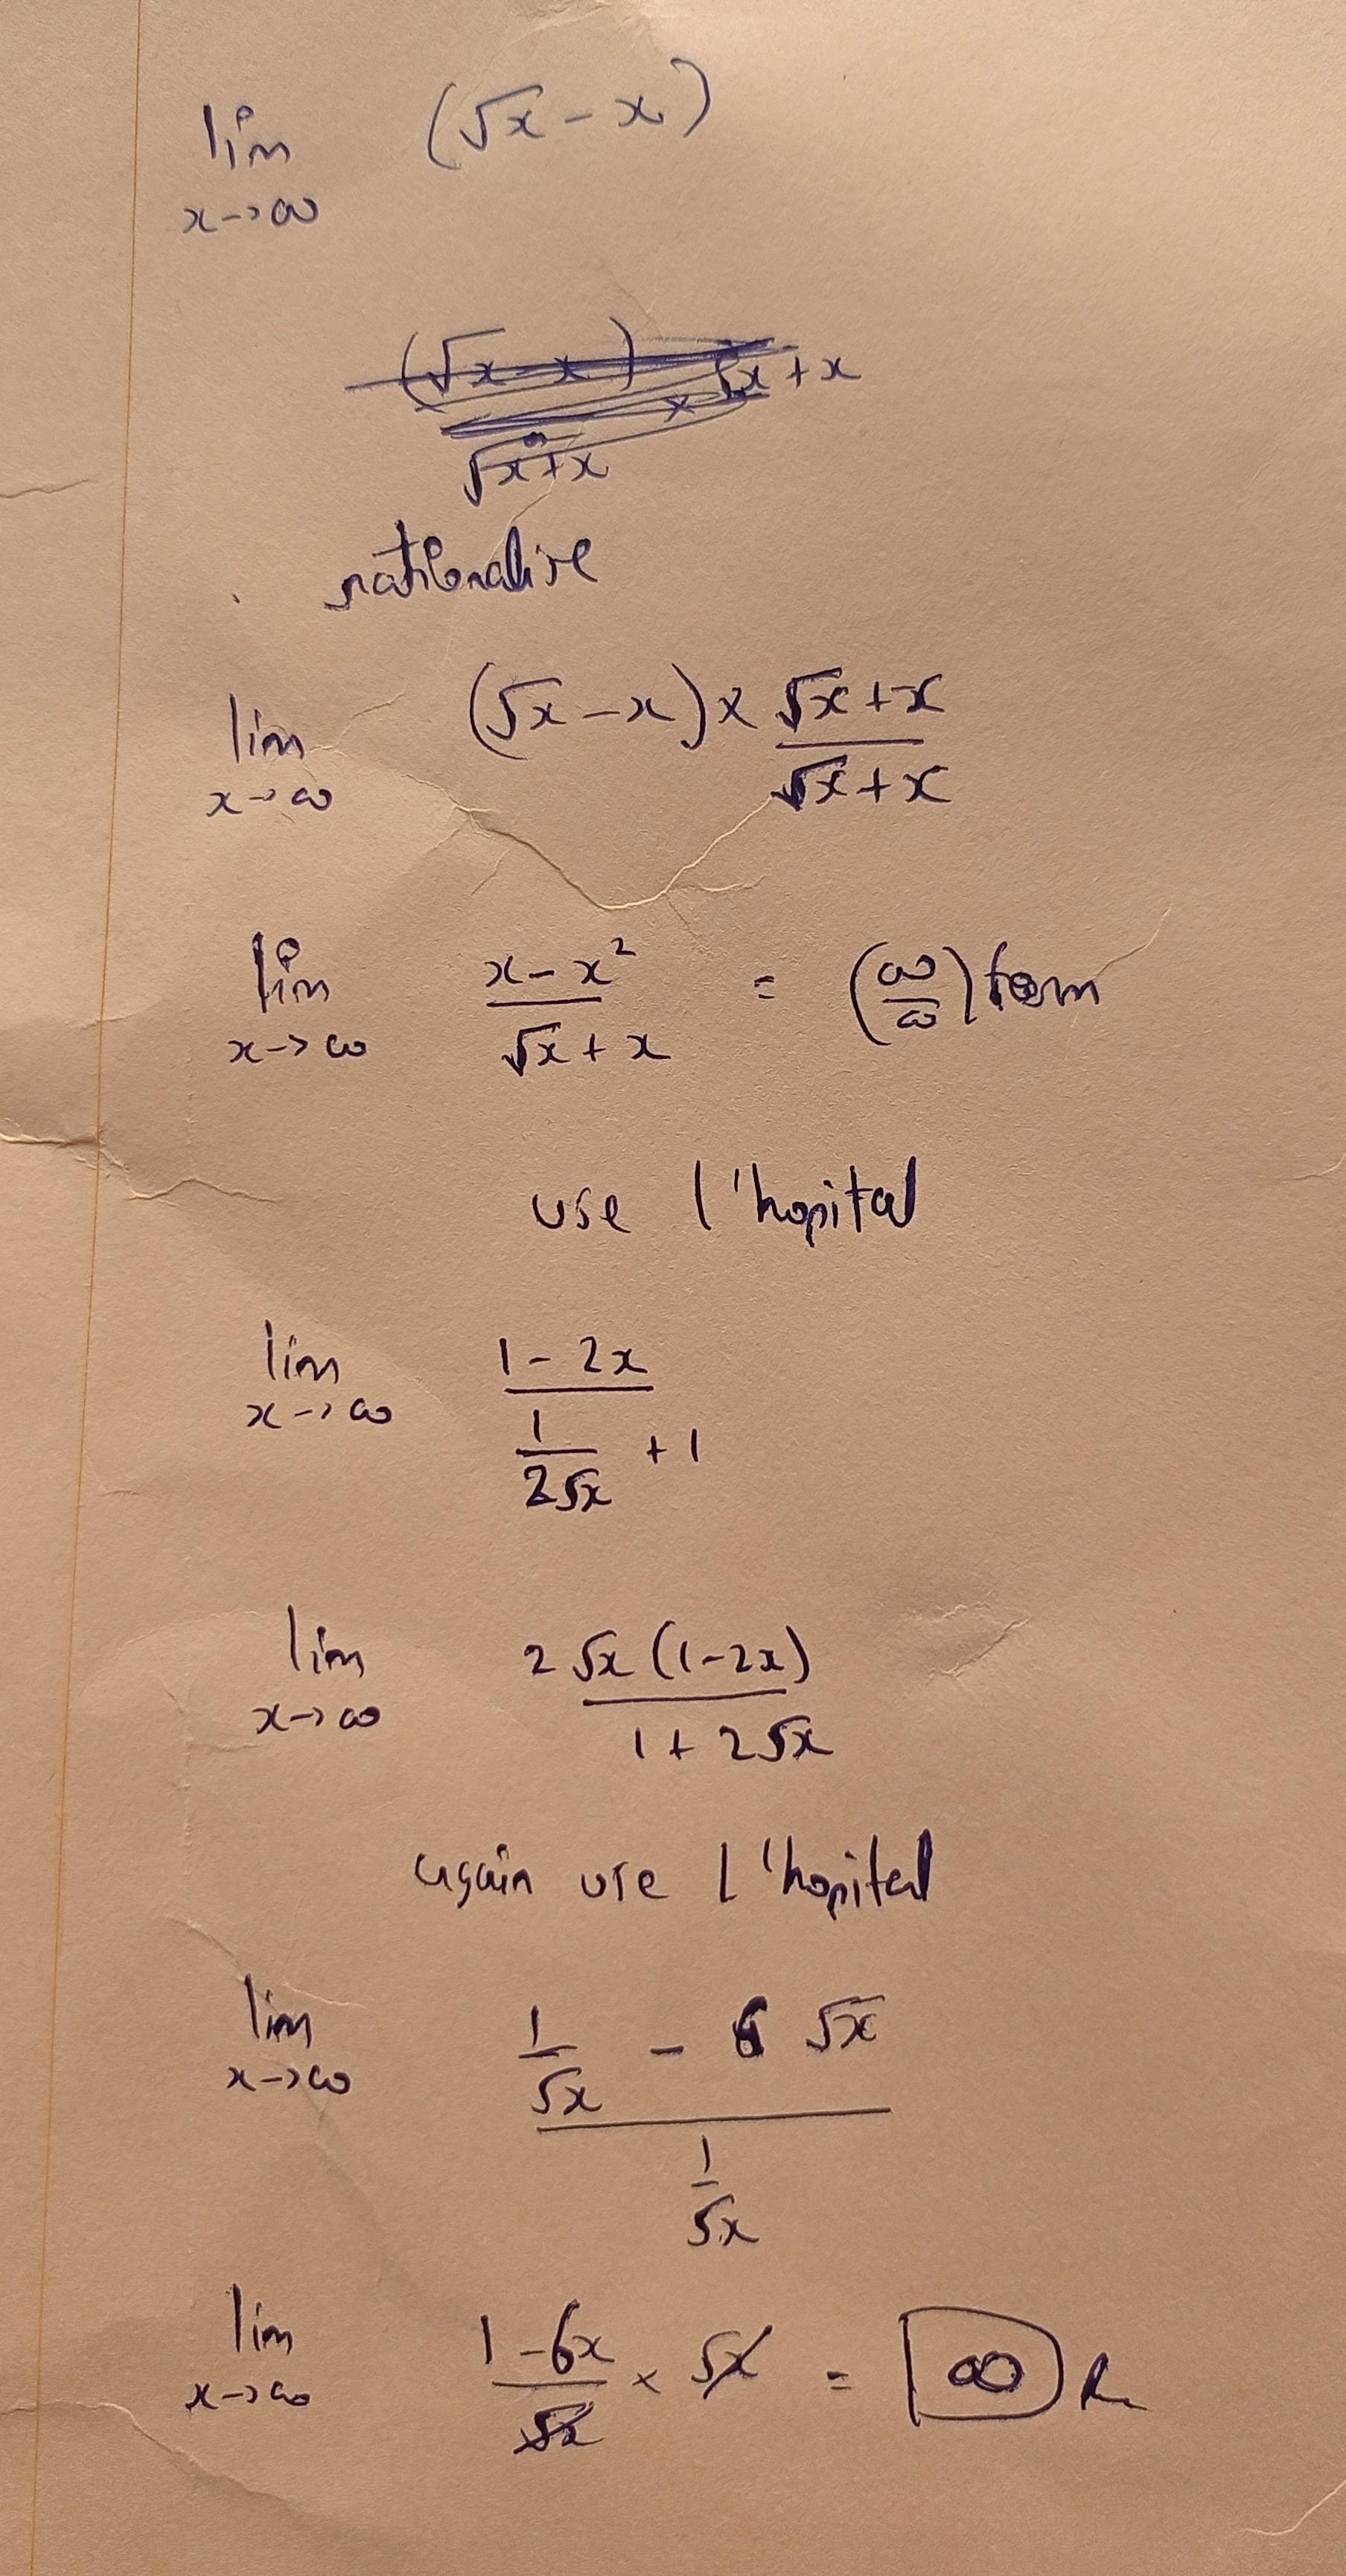 lim x→∞ (√x - x)
(√x - x) × √x + x / √x + x
rationalise
lim x→∞ (√x - x) × √x + x / √x + x
lim x→∞ x - x² / √x + x = (∞/∞) form
use l'hopital
lim x→∞ 1 - 2x / 1/2√x + 1
lim x→∞ 2√x (1-2x) / 1 + 2√x
again use l'hopital
lim x→∞ 1/√x - 6 √x / 1/√x
lim x→∞ 1-6x / √x × √x = ∞